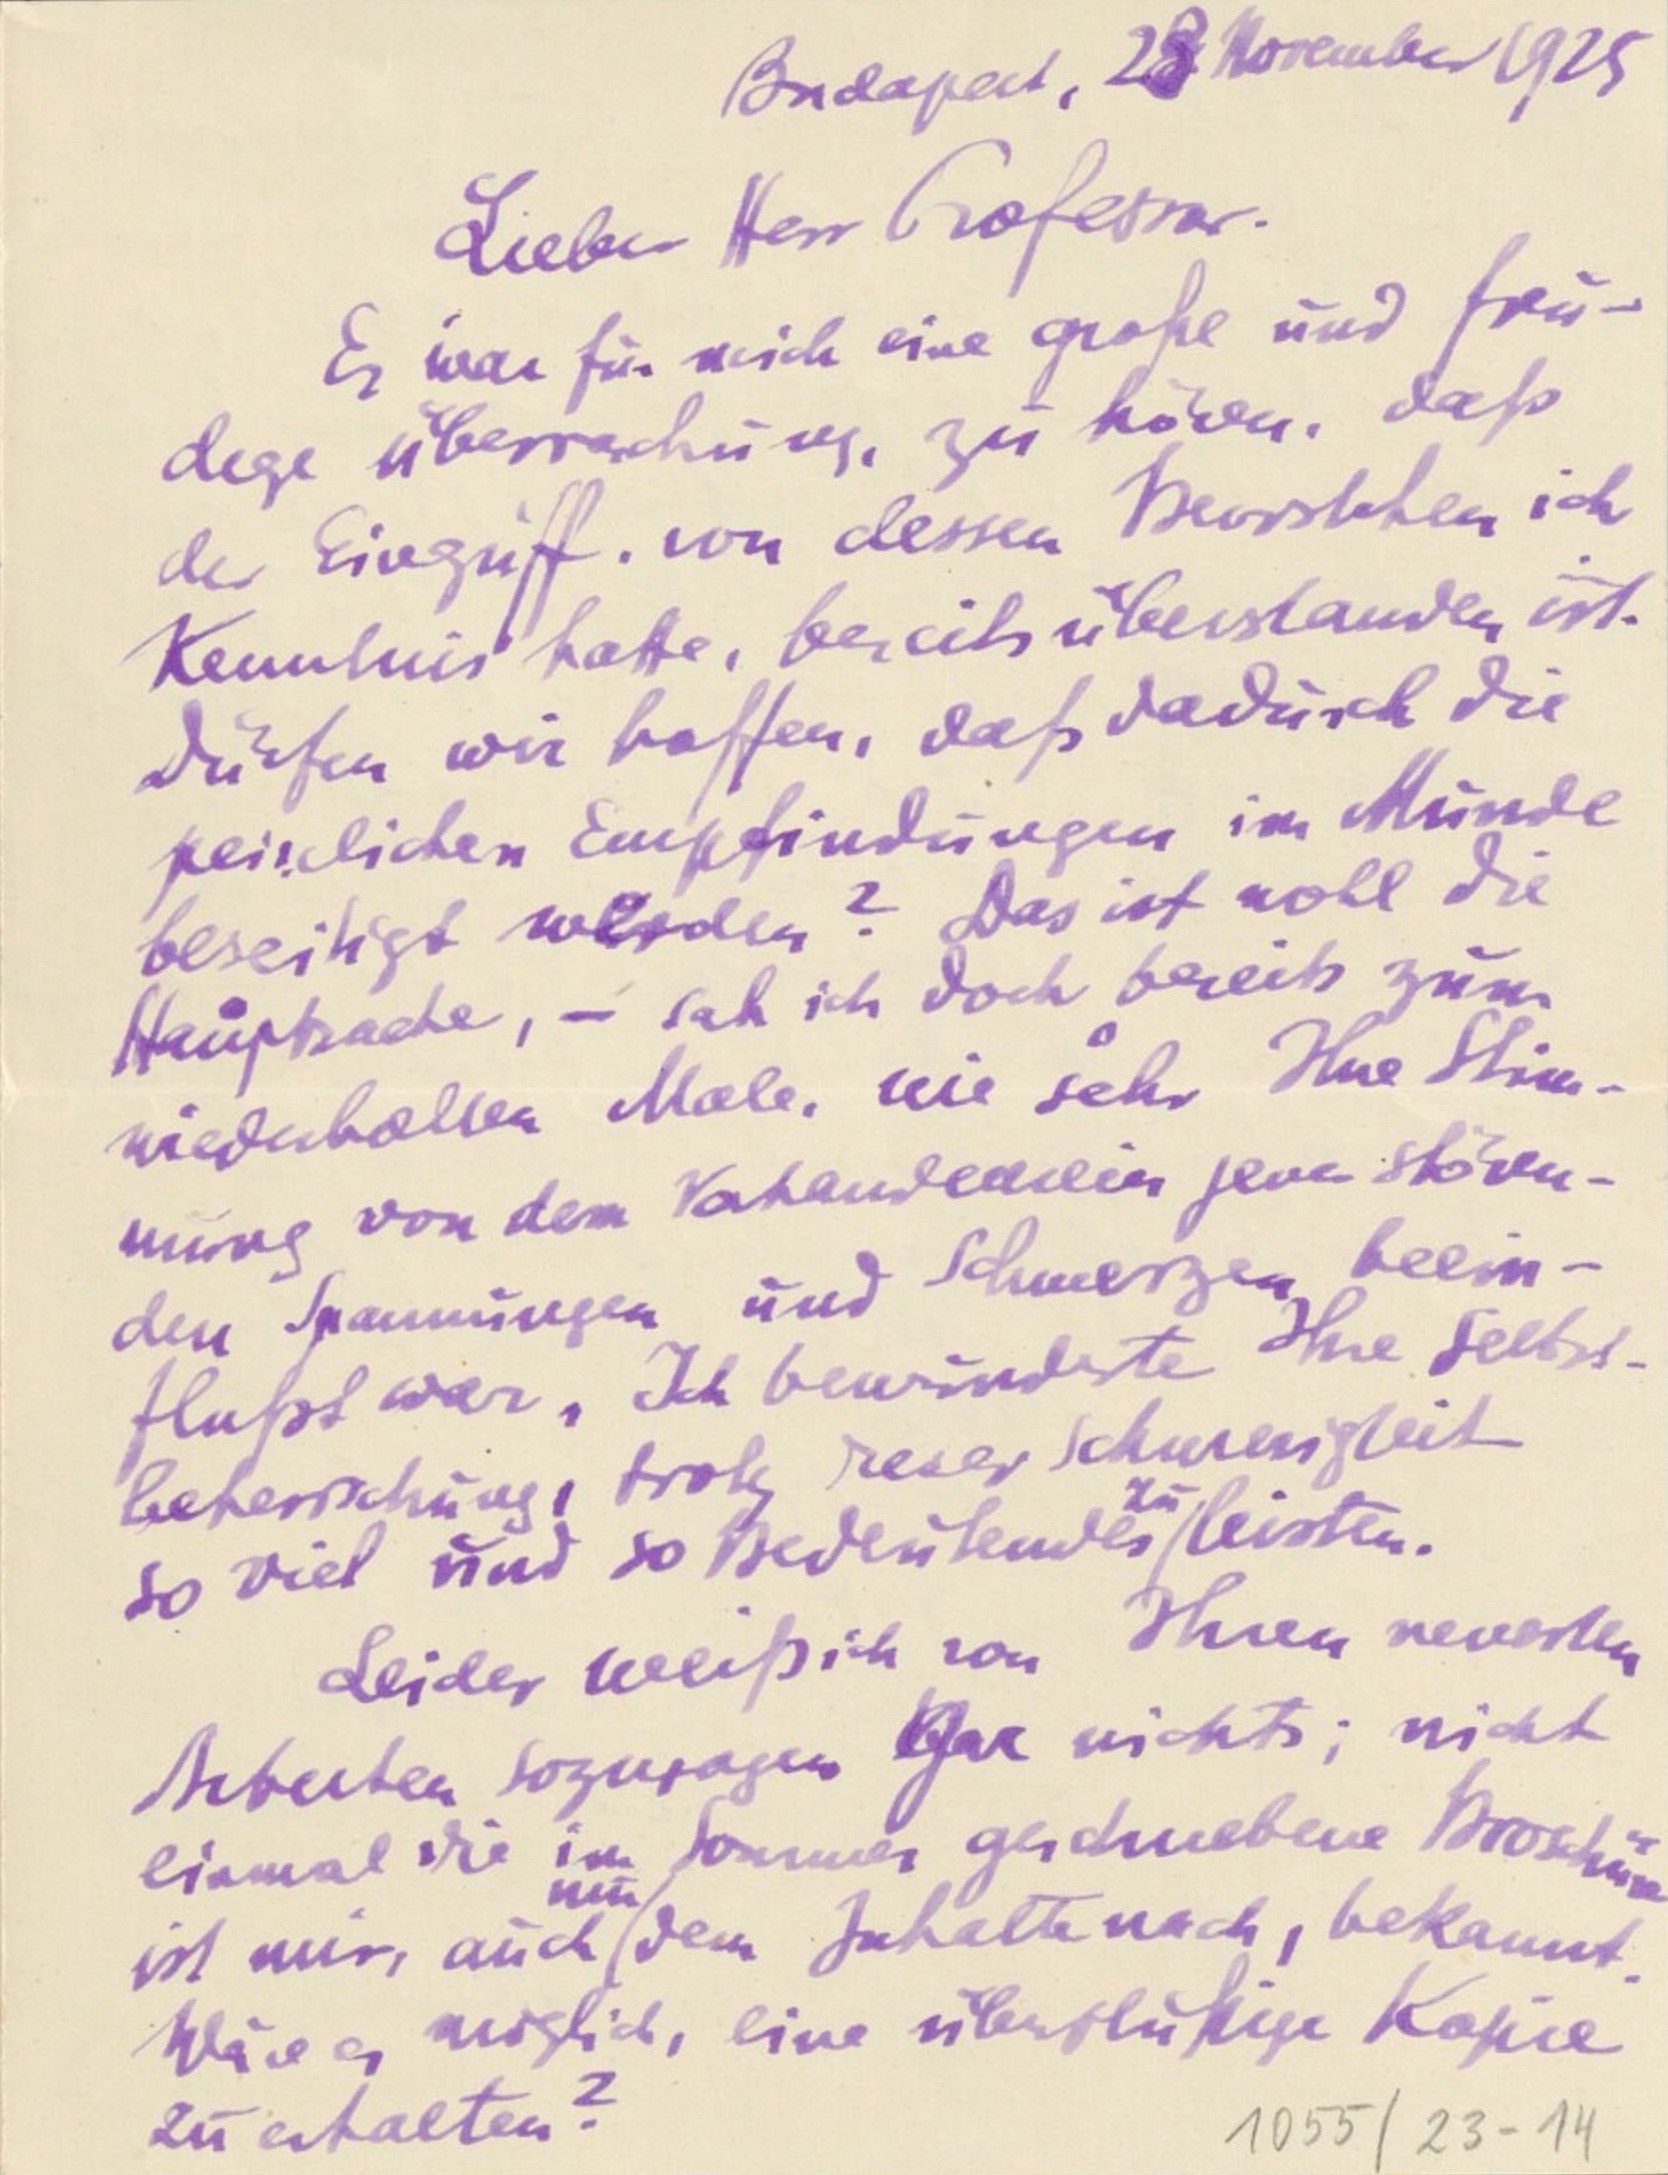 Budapest, 28 November 1925
Lieber Herr Professor.
Es war für mich eine große und freu-
dige Überraschung, zu hören, daß
der Eingriff, von dessen Bevorstehen ich
Kenntnis hatte, bereits überstanden ist.
Dürfen wir hoffen, daß dadurch die
peinlichen Empfindungen im Munde
beseitigt werden? Das ist wohl die
Hauptsache, – sah ich doch bereits zum
wiederholten Male, wie sehr Ihre Stim-
mung von dem Vorhandensein jener stören-
den Spannungen und Schmerzen beein-
flußt war. Ich bewunderte Ihre Selbst-
beherrschung, trotz dieser Schwierigkeit
so viel und so Bedeutendes zu leisten.
Leider weiß ich von Ihren neuesten
Arbeiten sozusagen gar nichts; nicht
einmal die im Sommer geschriebene Broschüre
ist mir, auch nur dem Inhalte nach, bekannt.
Wäre es möglich, eine überflüßige Kopie
zu erhalten?
1055/23-14